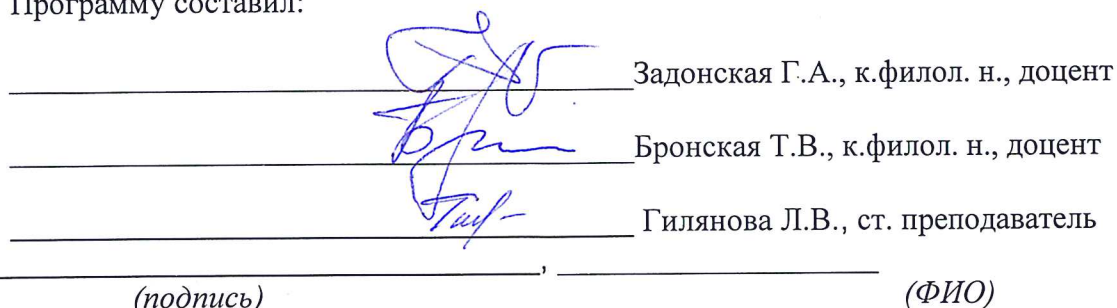 Программу составил:
Задонская Г.А., к.филол. н., доцент
Бронская Т.В., к.филол. н., доцент
Гилянова Л.В., ст. преподаватель
,
(подпись) (ФИО)